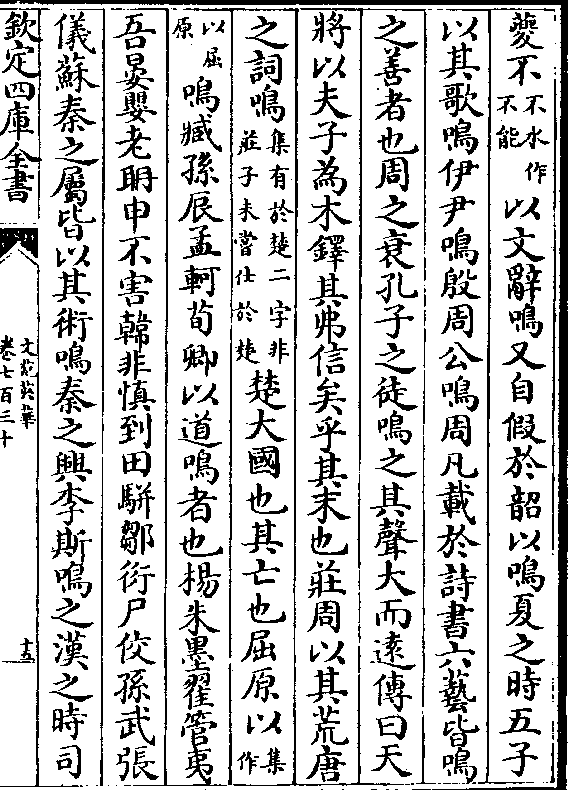 夔不不水作不能以文辭鳴又自假於韶以鳴夏之時五子
以其歌鳴伊尹鳴殷周公鳴周凡載於詩書六藝皆鳴
之善者也周之衰孔子之徒鳴之其聲大而遠傳曰天
將以夫子為木鐸其弗信矣乎其末也莊周以其荒唐
之詞鳴集有於楚二字非莊子未嘗仕於楚楚大國也其亡也屈原以集作
以屈原鳴臧孫辰孟軻荀卿以道鳴者也楊朱墨翟管夷
吾晏嬰老聃申不害韓非慎到田駢鄒衍尸佼孫武張
儀蘇秦之屬皆以其術鳴秦之興李斯鳴之漢之時司
欽定四庫全書
文苑英華
卷七百三十
十五